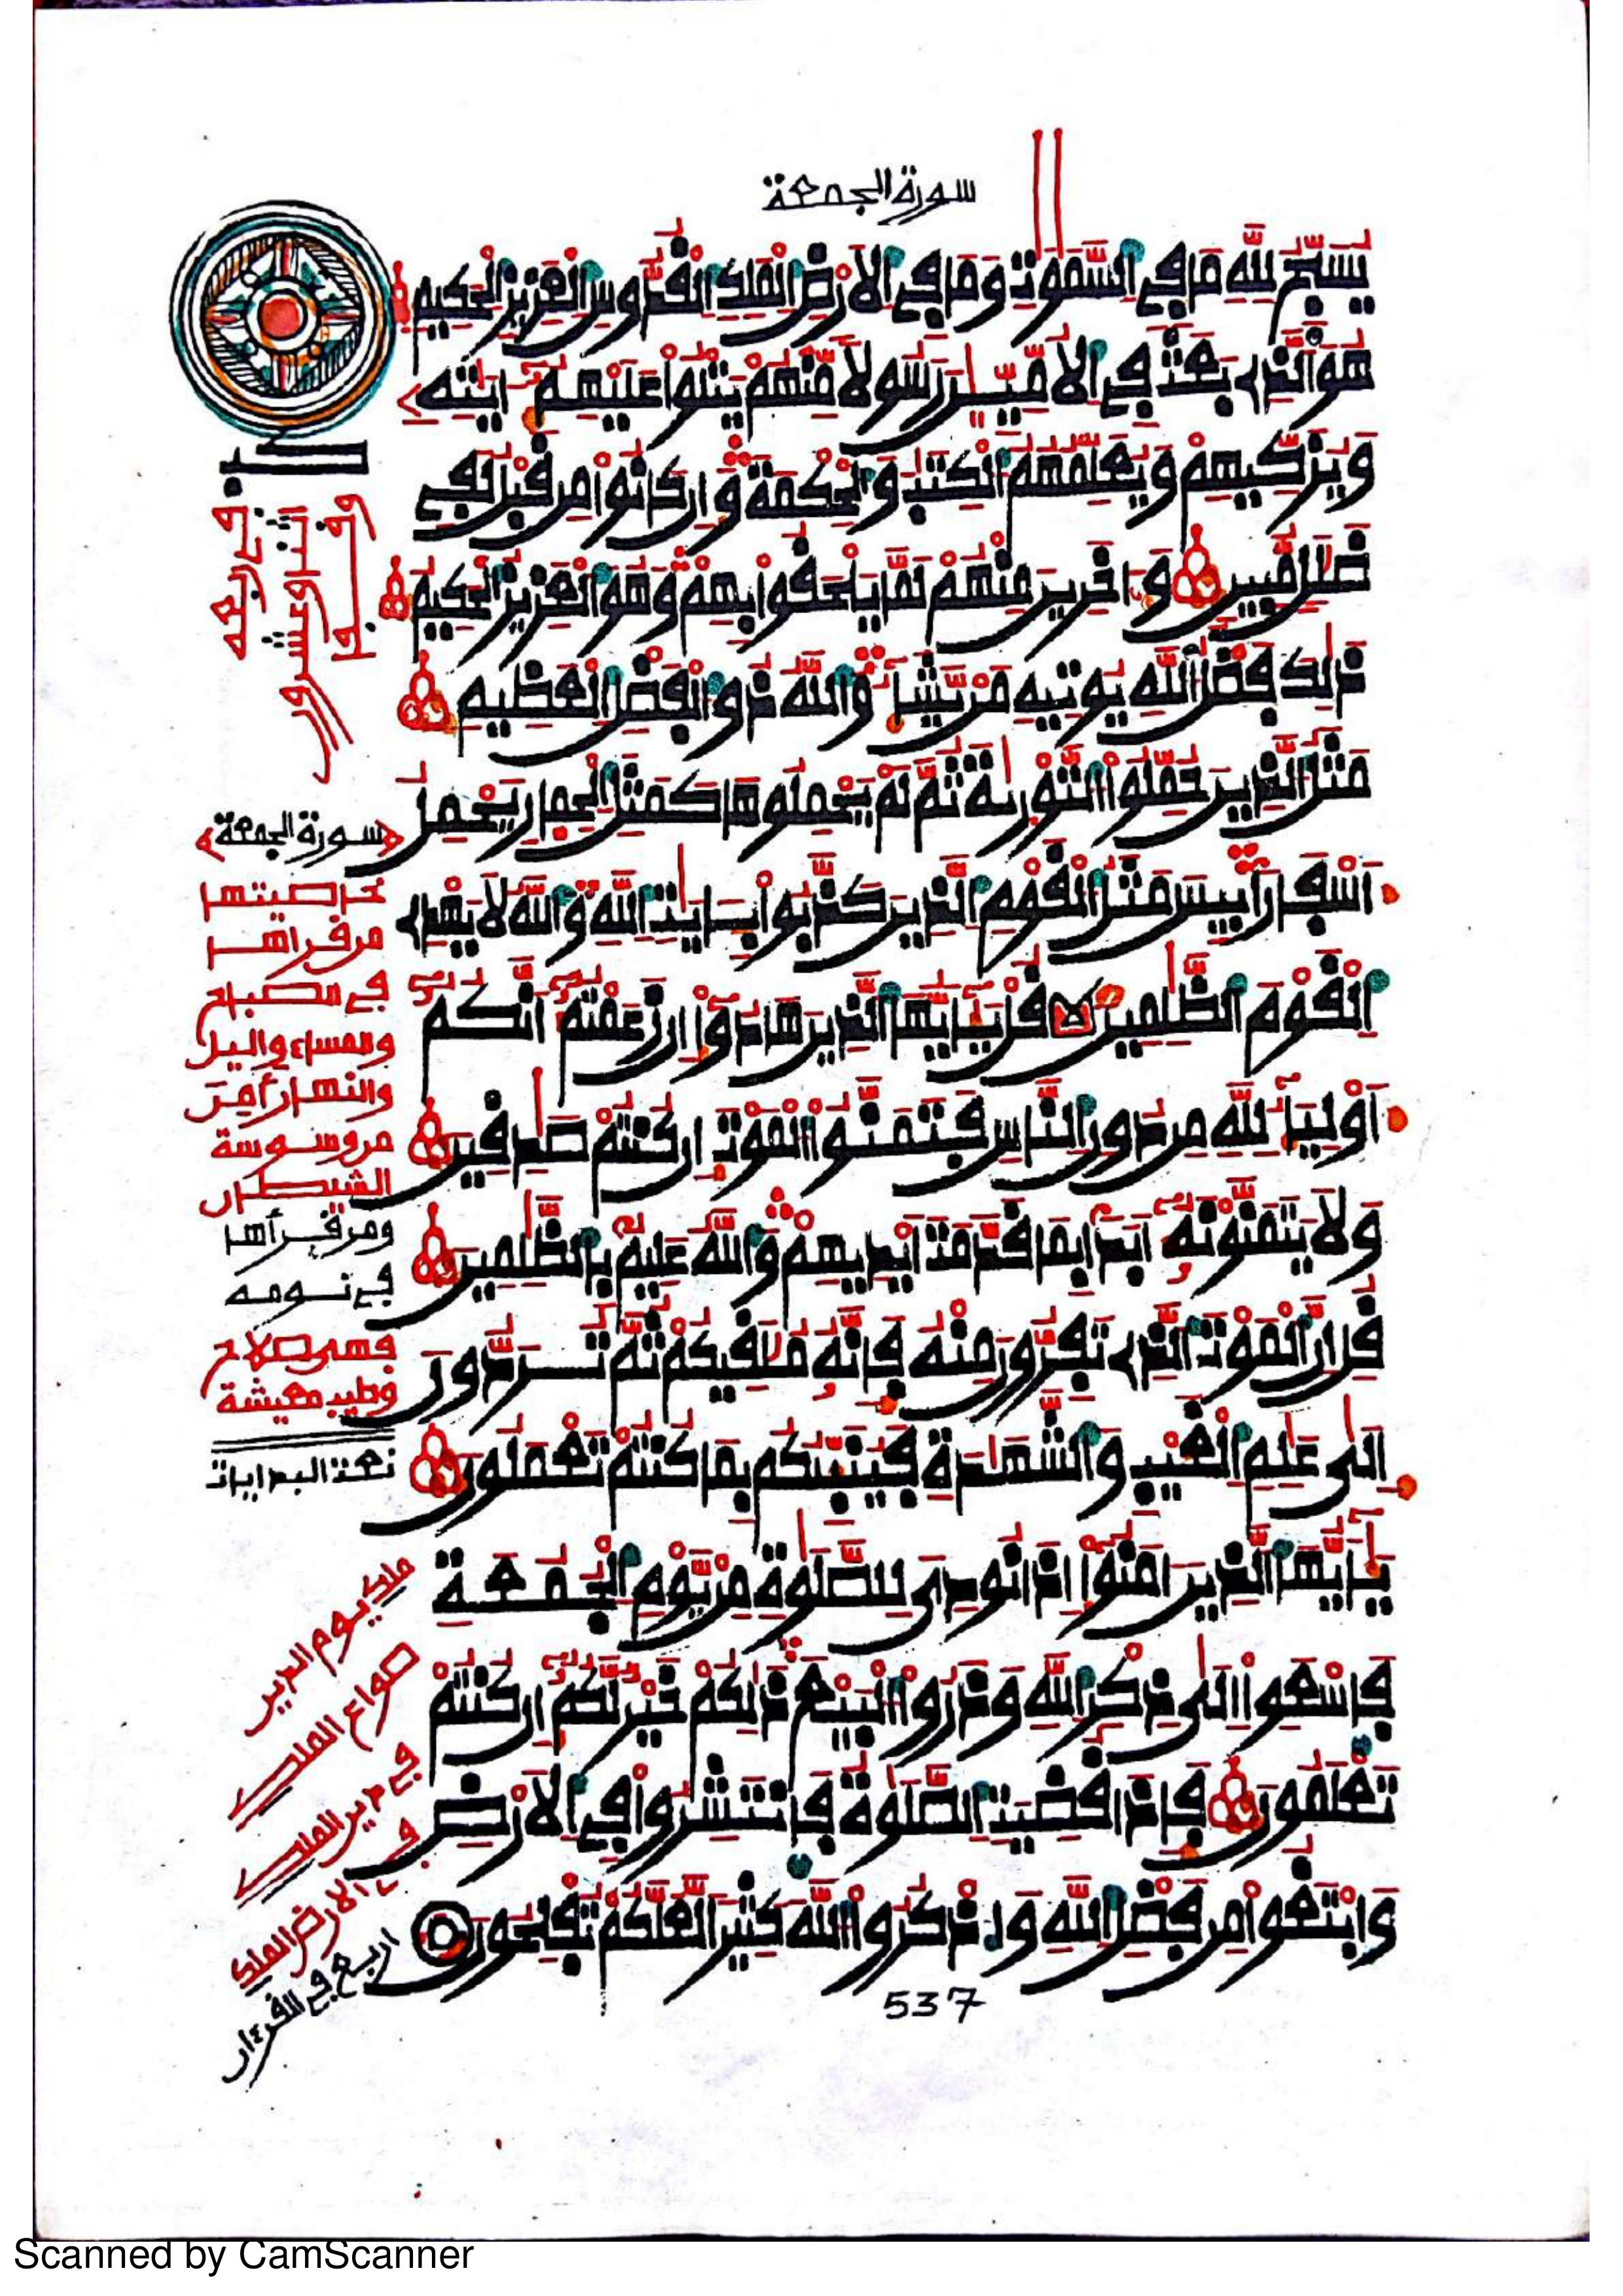 سورة الجمعة
يُسَبِّحُ لِلهِ مَا فِي السَّمَٰوَٰتِ وَمَا فِي الَارْضِ الْمَلِكِ الْقُدُّوسِ الْعَزِيزِ الْحَكِيمِ
هُوَ الَّذِي بَعَثَ فِي الُامِّيِّـنَ رَسُولًا مِّنْهُمْ يَتْلُوا عَلَيْهِمُ ءَايَٰتِهِ
وَيُزَكِّيهِمْ وَيُعَلِّمُهُمُ الْكِتَٰبَ وَالْحِكْمَةَ وَإِن كَانُوا مِن قَبْلُ لَفِي
ضَلَٰلٍ مُّبِينٍ وَءَاخَرِينَ مِنْهُمْ لَمَّا يَلْحَقُوا بِهِمْ وَهُوَ الْعَزِيزُ الْحَكِيمُ
ذَٰلِكَ فَضْلُ اللَّهِ يُوتِيهِ مَنْ يَّشَآءُ وَاللَّهُ ذُو الْفَضْلِ الْعَظِيمِ
مَثَلُ الَّذِينَ حُمِّلُوا التَّوْرَىٰةَ ثُمَّ لَمْ يَحْمِلُوهَا كَمَثَلِ الْحِمَارِ يَحْمِلُ
أَسْفَارًا بِيسَ مَثَلُ الْقَوْمِ الَّذِينَ كَذَّبُوا بِـَٔايَٰتِ اللَّهِ وَاللَّهُ لَا يَهْدِي
الْقَوْمَ الظَّٰلِمِينَ قُلْ يَٰأَيُّهَا الَّذِينَ هَادُوا إِن زَعَمْتُمُ أَنَّكُمُ
أَوْلِيَآءُ لِلَّهِ مِن دُونِ النَّاسِ فَتَمَنَّوُا الْمَوْتَ إِن كُنتُمْ صَٰدِقِينَ
وَلَا يَتَمَنَّوْنَهُ أَبَدًا بِمَا قَدَّمَتَ ايْدِيهِمْ وَاللَّهُ عَلِيمٌ بِالظَّٰلِمِينَ
قُلِ انَّ الْمَوْتَ الَّذِي تَفِرُّونَ مِنْهُ فَإِنَّهُ مُلَٰقِيكُمْ ثُمَّ تُـرَدُّونَ
إِلَىٰ عَٰلِمِ الْغَيْبِ وَالشَّهَٰدَةِ فَيُنَبِّئُكُم بِمَا كُنتُمْ تَعْمَلُونَ
يَٰأَيُّهَا الَّذِينَ ءَامَنُوا إِذَا نُودِيَ لِلصَّلَوٰةِ مِنْ يَّوْمِ الْجُمُعَةِ
فَاسْعَوِا الَىٰ ذِكْرِ اللَّهِ وَذَرُوا الْبَيْعَ ذَٰلِكُمْ خَيْرٌ لَّكُمُ إِن كُنتُمْ
تَعْلَمُونَ فَإِذَا قُضِيَتِ الصَّلَوٰةُ فَانتَشِرُوا فِي الَارْضِ
وَابْتَغُوا مِن فَضْلِ اللَّهِ وَاذْكُرُوا اللَّهَ كَثِيرًا لَّعَلَّكُمْ تُفْلِحُونَ
537
سورة الجمعة
خاصيتها
من قرأها
في الصباح
والمساء واليل
والنهار أمِنَ
من وسوسة
الشيطان
ومن قرأها
في نومه
فهي صلاح
وطيب معيشة
نعت البدايات
ملك يوم الدين
صواع الملك
في دين الملك
الارض الملك
اربع في القرءان
Scanned by CamScanner